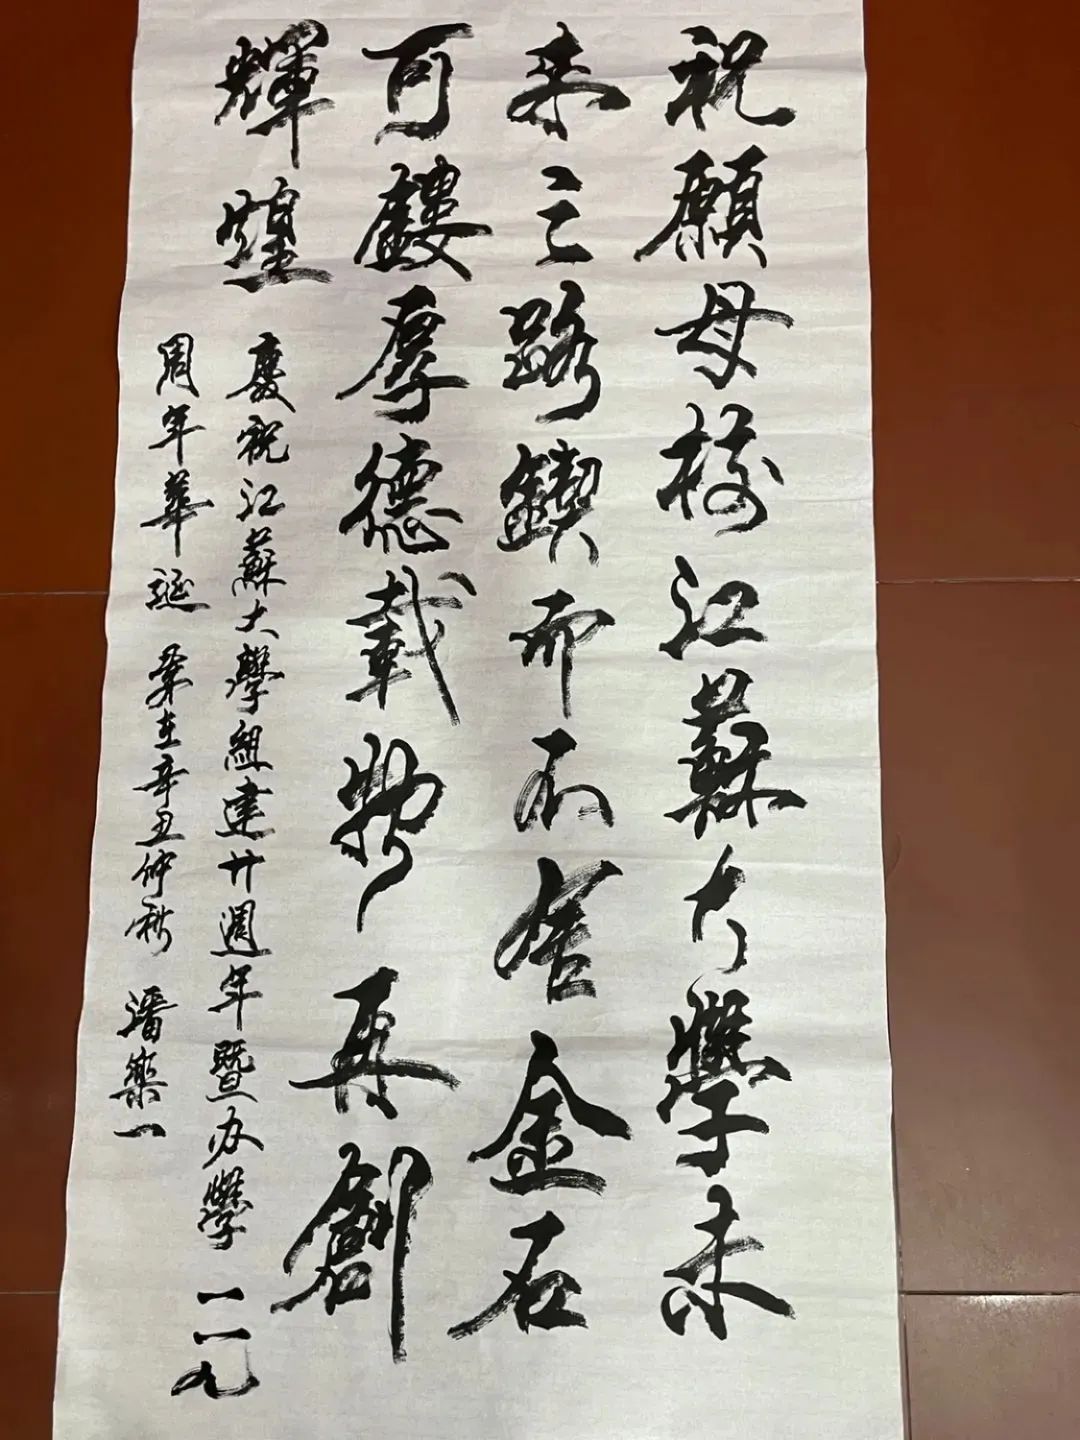 祝願母校江蘇大學未
来之路鍥而不舍金石
可鏤厚德載物再創
輝煌
慶祝江蘇大學組建廿週年暨办學一一九
周年華誕 桼在辛丑仲秋 潘樂一